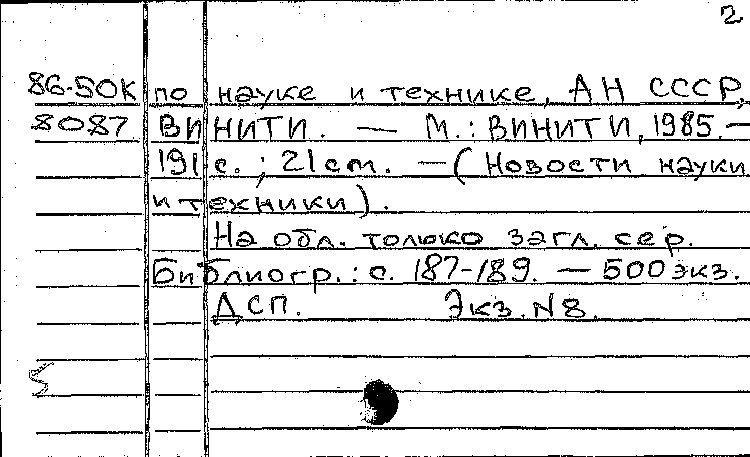 2
86-50К по науке и технике, АН СССР,
8087 ВИНИТИ. — М.: ВИНИТИ, 1985. —
191 с. ; 21 см. — (Новости науки
и техники).
На обл. только загл. сер.
Библиогр.: с. 187-189. — 500 экз.
ДСП. Экз. N 8.